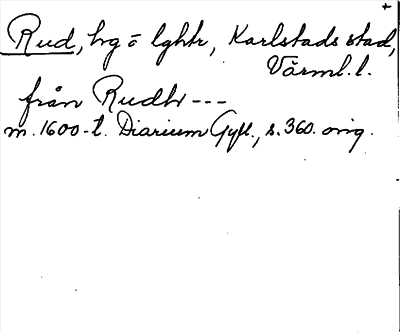 +
Rud, hg o lghtr, Karlstads stad,
Värml. l.
från Rudh ---
m. 1600-t. Diarium Gyll., s. 360. orig.